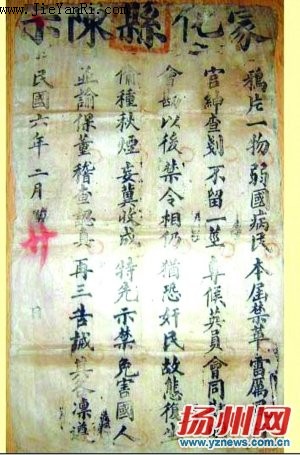 www.JieYanRi.com
化縣陳示
鴉片一物弱國病民本届禁革雷厲
官紳查剗不留一莖專候英員會同
會勘以後禁令相仍猶恐奸民故態復
偷種秋煙妄冀收成特先示禁免害國人
並諭保董稽查認真再三告誡其各凜遵
民國六年二月廿日
扬州网
www.yznews.cn